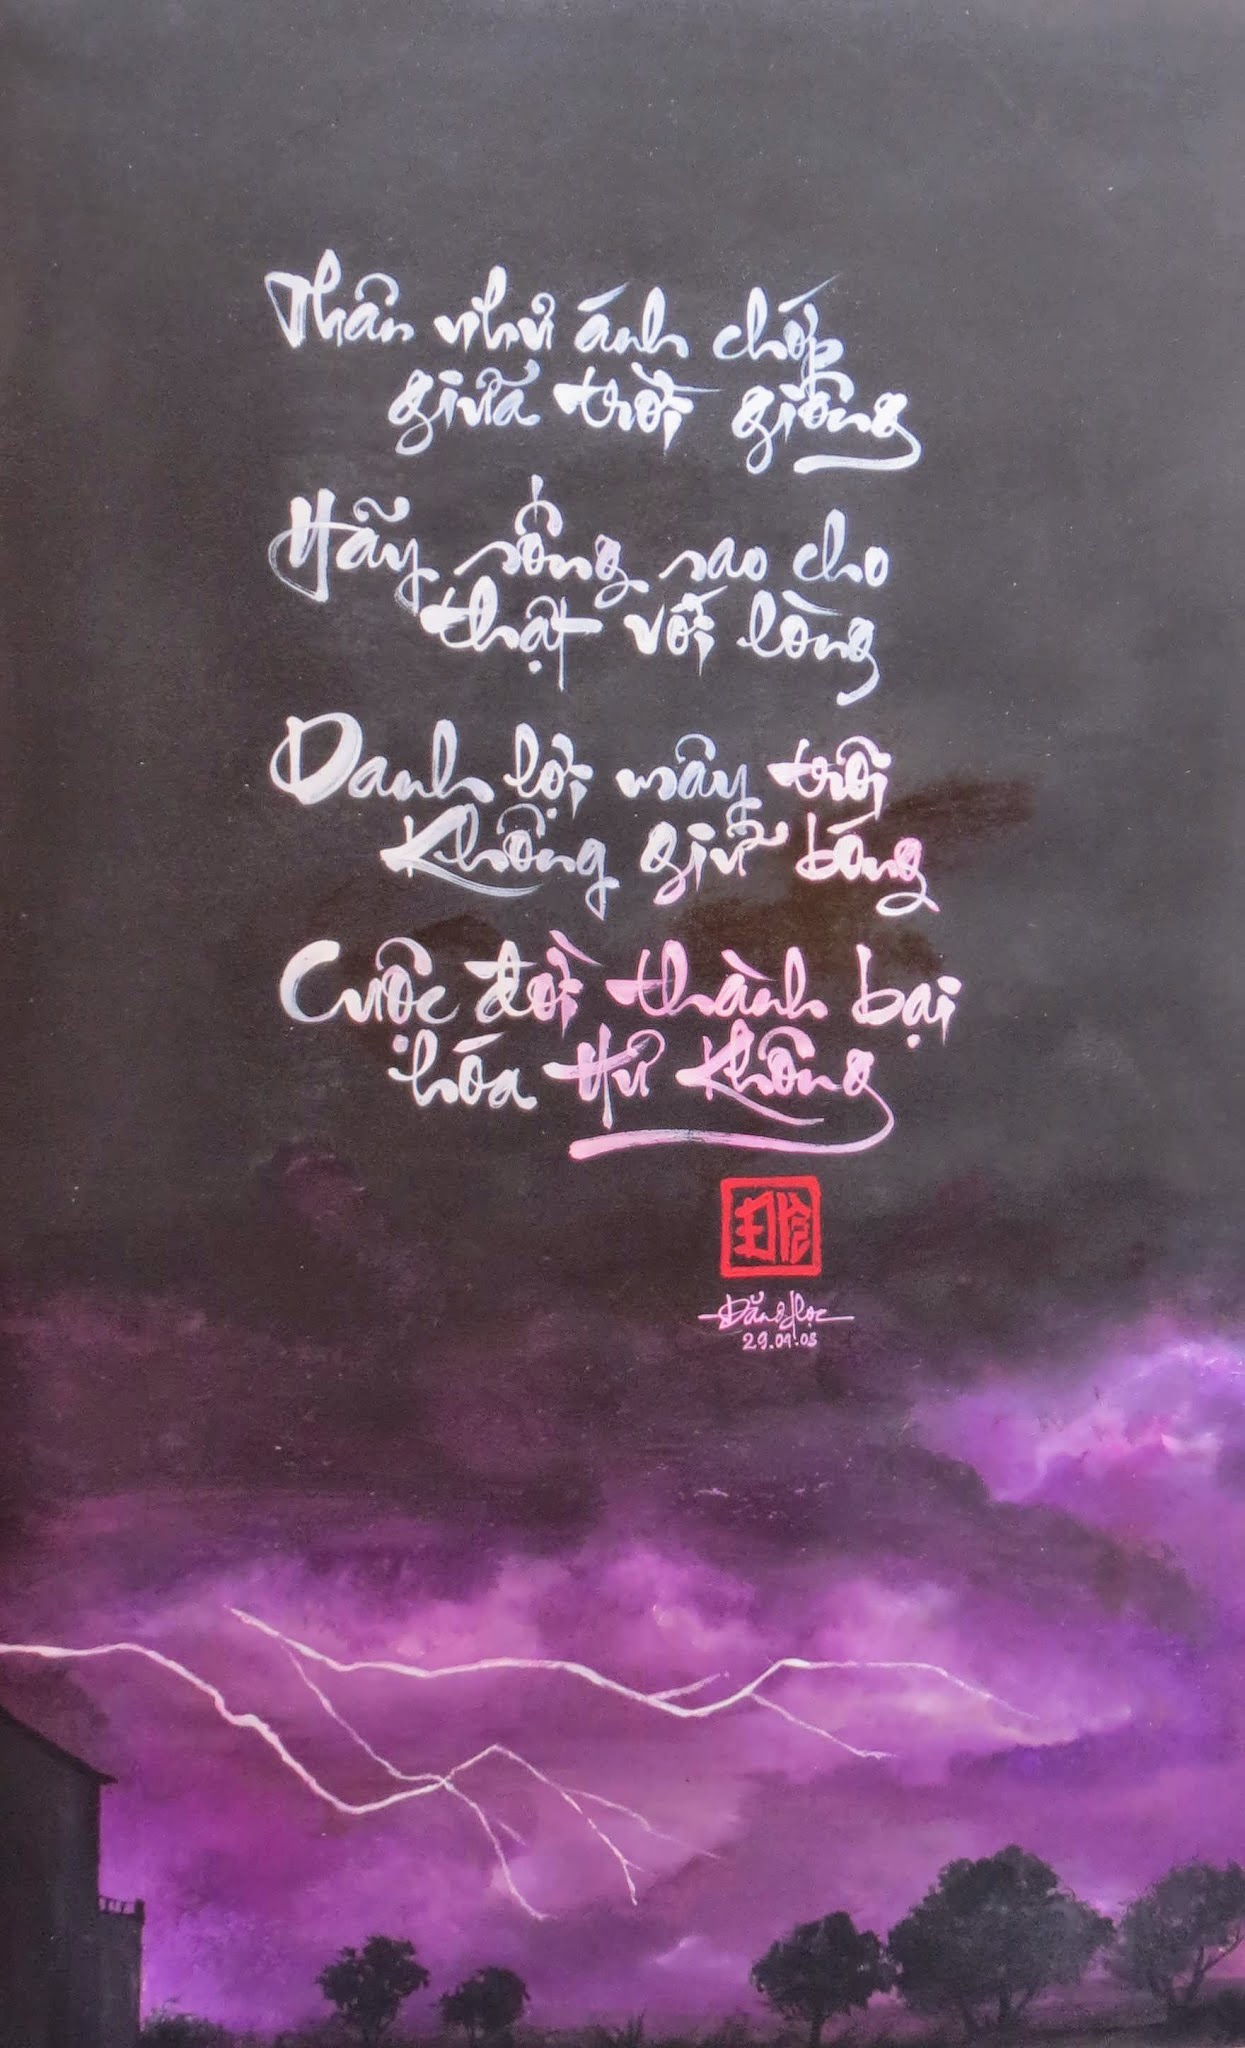 Thân như ánh chớp
giữa trời giông
Hãy sống sao cho
thật với lòng
Danh lợi mây trôi
Không giữ bóng
Cuộc đời thành bại
hóa hư không
Đăng Học